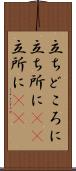 立ちどころに
立ち所に
立所に